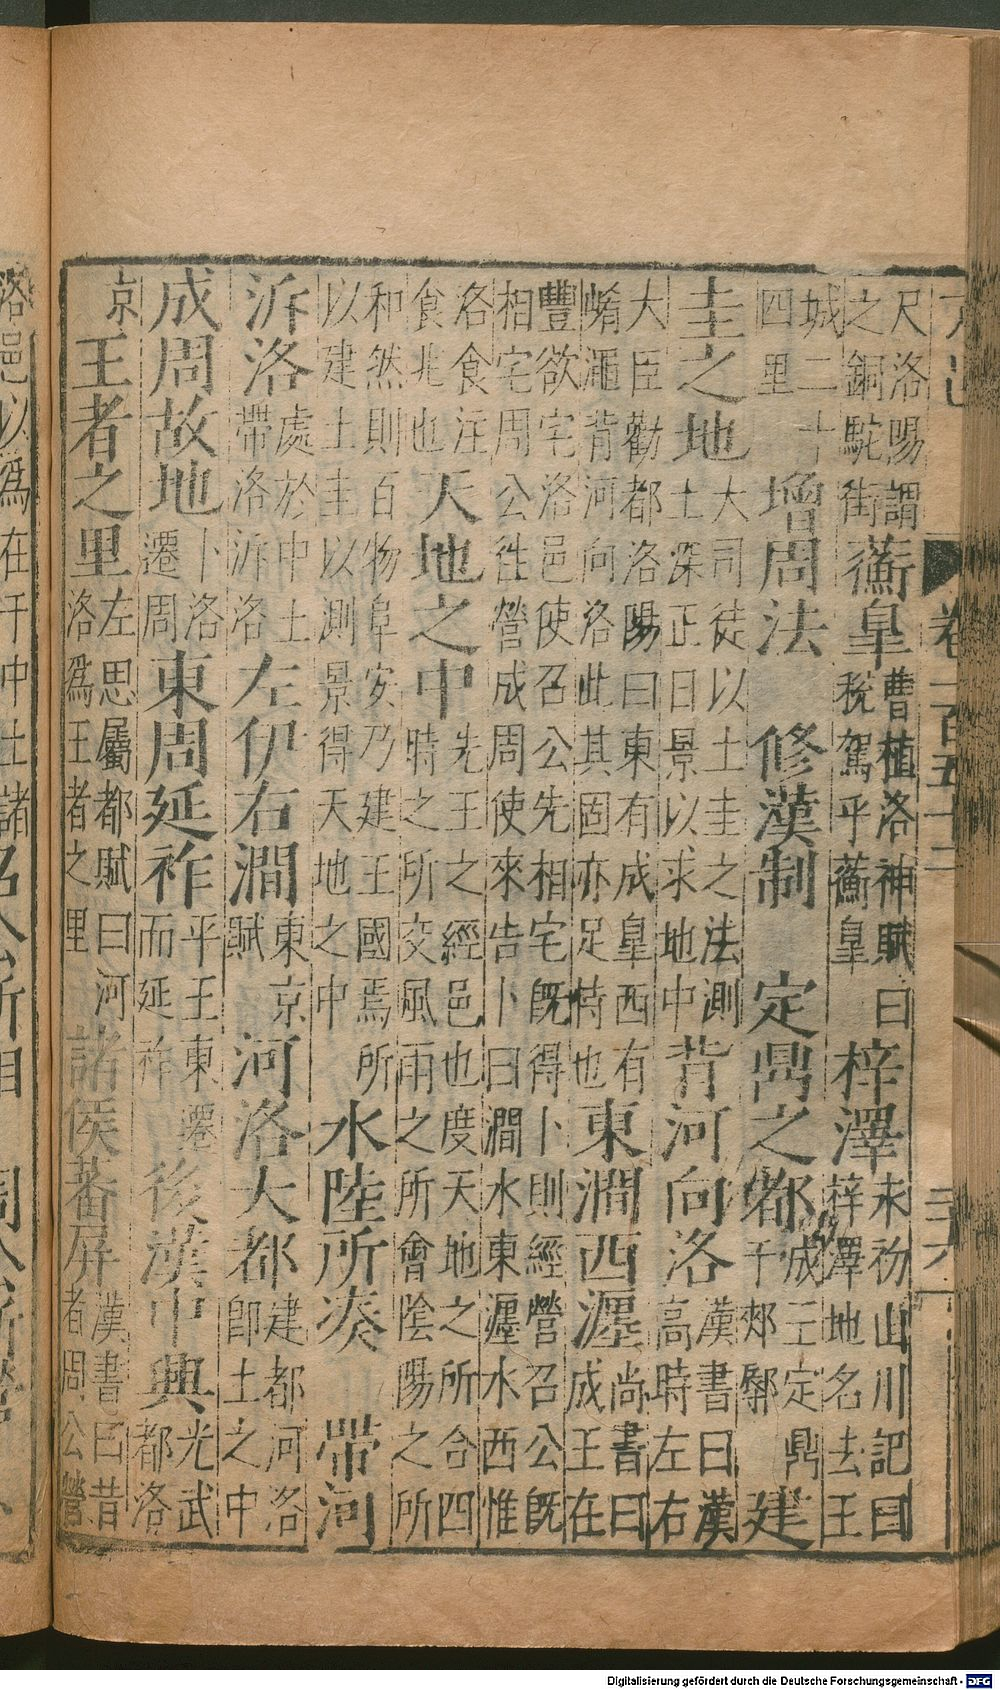 卷一百五十二
尺洛陽謂
之銅駝街
蘅皐
曹植洛神賦曰
稅駕乎蘅皐
梓澤
未礽山川記曰
梓澤地名去王
城二十
四里
增周法　修漢制　定鼎之都
成王定鼎
于郟鄏
建
圭之地
大司徒以土圭之法測
土深正日景以求地中
背河向洛
漢書曰漢
高時左右
大臣勸都洛陽曰東有成皐西有
崤澠背河向洛此其固亦足恃也
東澗西瀍
尚書曰
成王在
豐欲宅洛邑使召公先相宅既得卜則經營召公既
相宅周公往營成周使來告卜曰澗水東瀍水西惟
洛食注
食兆也
天地之中
先王之經邑也度天地之所合四
時之所交風雨之所會陰陽之所
和然則百物阜安乃建王國焉所
以建土圭以測景得天地之中
水陸所湊　帶河
泝洛
處於中土
帶洛泝洛
左伊右澗
東京
賦
河洛大都
建都河洛
即土之中
成周故地
卜洛
遷周
東周延祚
平王東遷
而延祚
後漢中興
光武
都洛
京
王者之里
左思屬都賦曰河
洛爲王者之里
諸侯蕃屏
漢書曰昔
者周公營
洛邑以爲在于中土諸
Digitalisierung gefördert durch die Deutsche Forschungsgemeinschaft - DFG